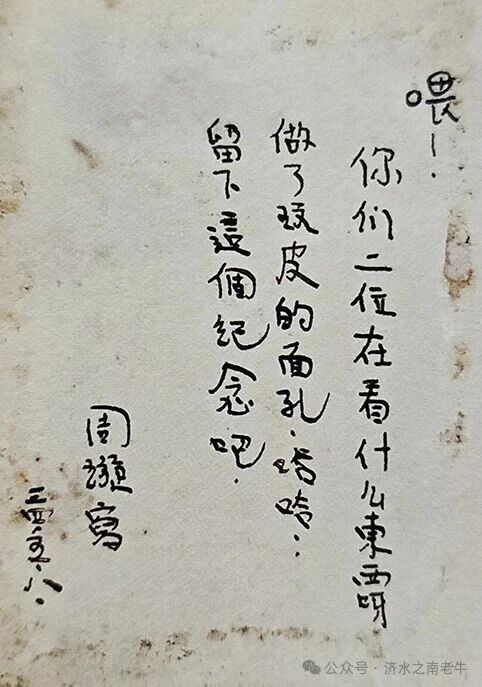 喂！
你们二位在看什么東西呀
做了玩皮的面孔．哈．．
留下這個紀念吧．
周璇寫
三四．五．八．
公众号·济水之南老牛